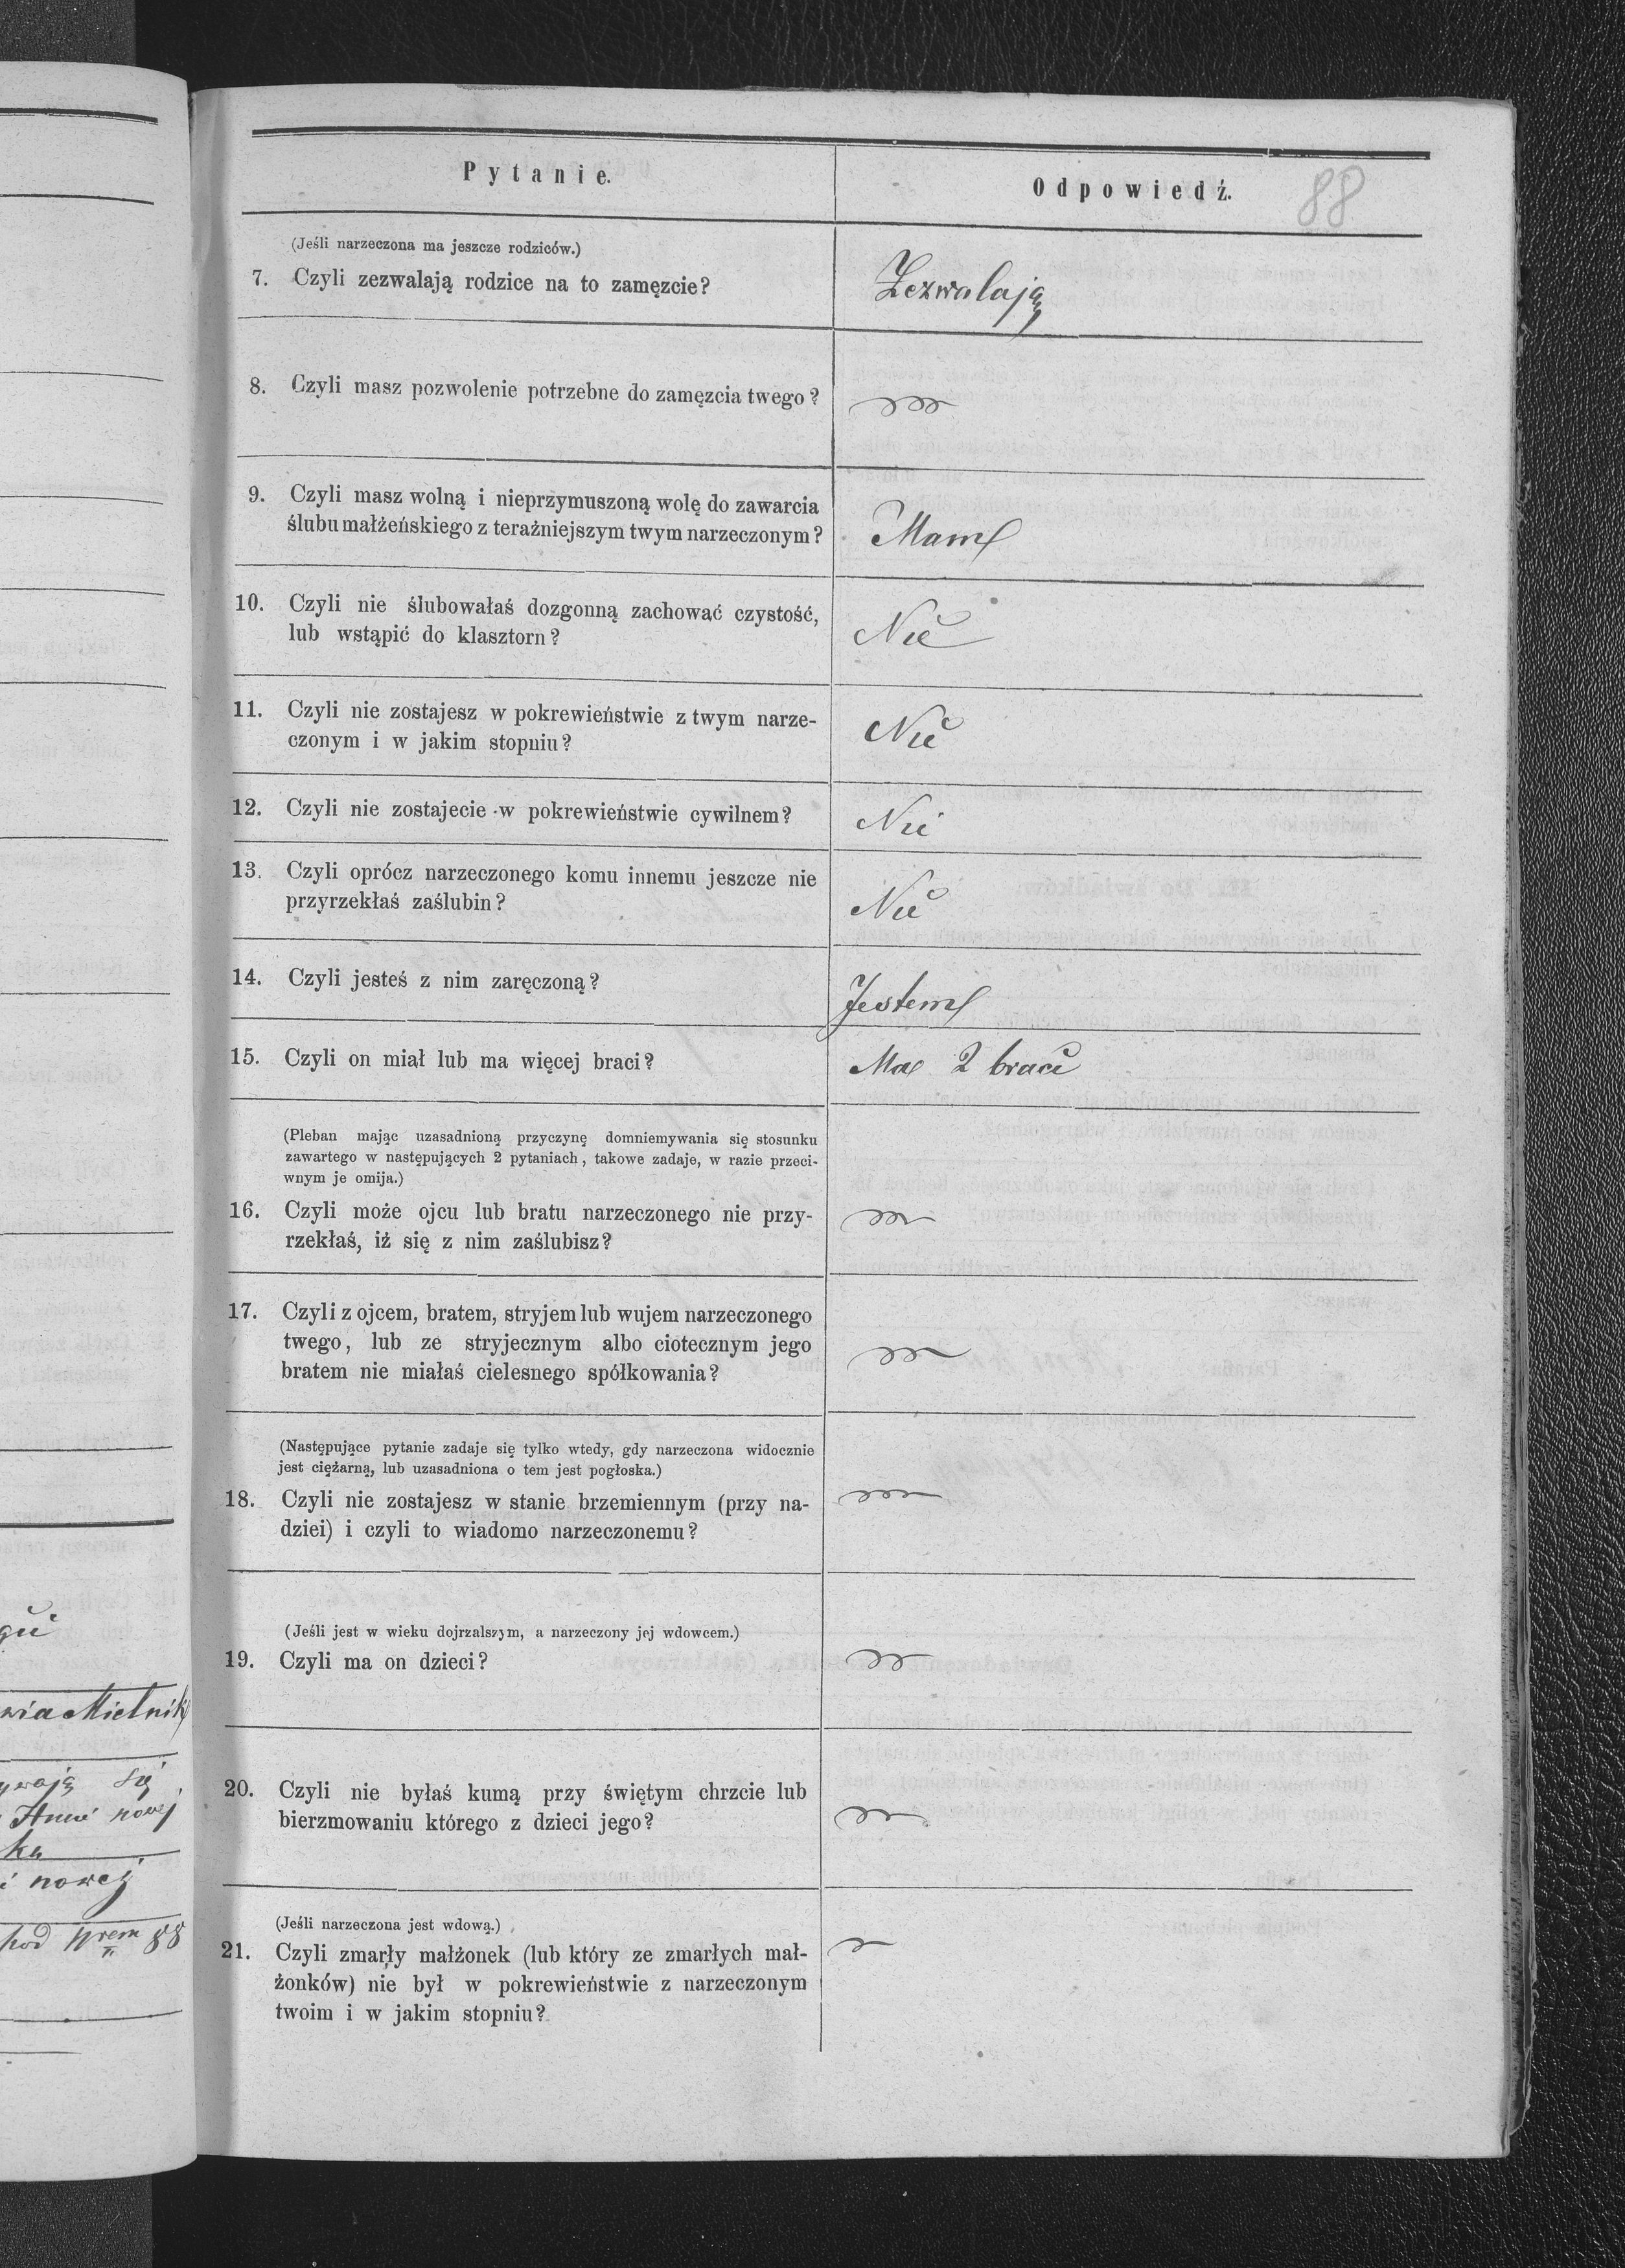 Pytanie.
Odpowiedź.
88
(Jeśli narzeczona ma jeszcze rodziców.)
7. Czyli zezwalają rodzice na to zamęzcie?
Zezwalają
8. Czyli masz pozwolenie potrzebne do zamęzcia twego?
9. Czyli masz wolną i nieprzymuszoną wolę do zawarcia
ślubu małżeńskiego z teraźniejszym twym narzeczonym?
Mam
10. Czyli nie ślubowałaś dozgonną zachować czystość,
lub wstąpić do klasztorn?
Nie
11. Czyli nie zostajesz w pokrewieństwie z twym narze-
czonym i w jakim stopniu?
Nie
12. Czyli nie zostajecie w pokrewieństwie cywilnem?
Nie
13. Czyli oprócz narzeczonego komu innemu jeszcze nie
przyrzekłaś zaślubin?
Nie
14. Czyli jesteś z nim zaręczoną?
Jestem
15. Czyli on miał lub ma więcej braci?
Ma 2 braci
(Pleban mając uzasadnioną przyczynę domniemywania się stosunku
zawartego w następujących 2 pytaniach, takowe zadaje, w razie przeci-
wnym je omija.)
16. Czyli może ojcu lub bratu narzeczonego nie przy-
rzekłaś, iż się z nim zaślubisz?
17. Czyli z ojcem, bratem, stryjem lub wujem narzeczonego
twego, lub ze stryjecznym albo ciotecznym jego
bratem nie miałaś cielesnego spółkowania?
(Następujące pytanie zadaje się tylko wtedy, gdy narzeczona widocznie
jest ciężarną, lub uzasadniona o tem jest pogłoska.)
18. Czyli nie zostajesz w stanie brzemiennym (przy na-
dziei) i czyli to wiadomo narzeczonemu?
(Jeśli jest w wieku dojrzalszym, a narzeczony jej wdowcem.)
19. Czyli ma on dzieci?
20. Czyli nie byłaś kumą przy świętym chrzcie lub
bierzmowaniu którego z dzieci jego?
(Jeśli narzeczona jest wdową.)
21. Czyli zmarły małżonek (lub który ze zmarłych mał-
żonków) nie był w pokrewieństwie z narzeczonym
twoim i w jakim stopniu?
Mielnik
się
nowej
nowej
pod Nrem 88